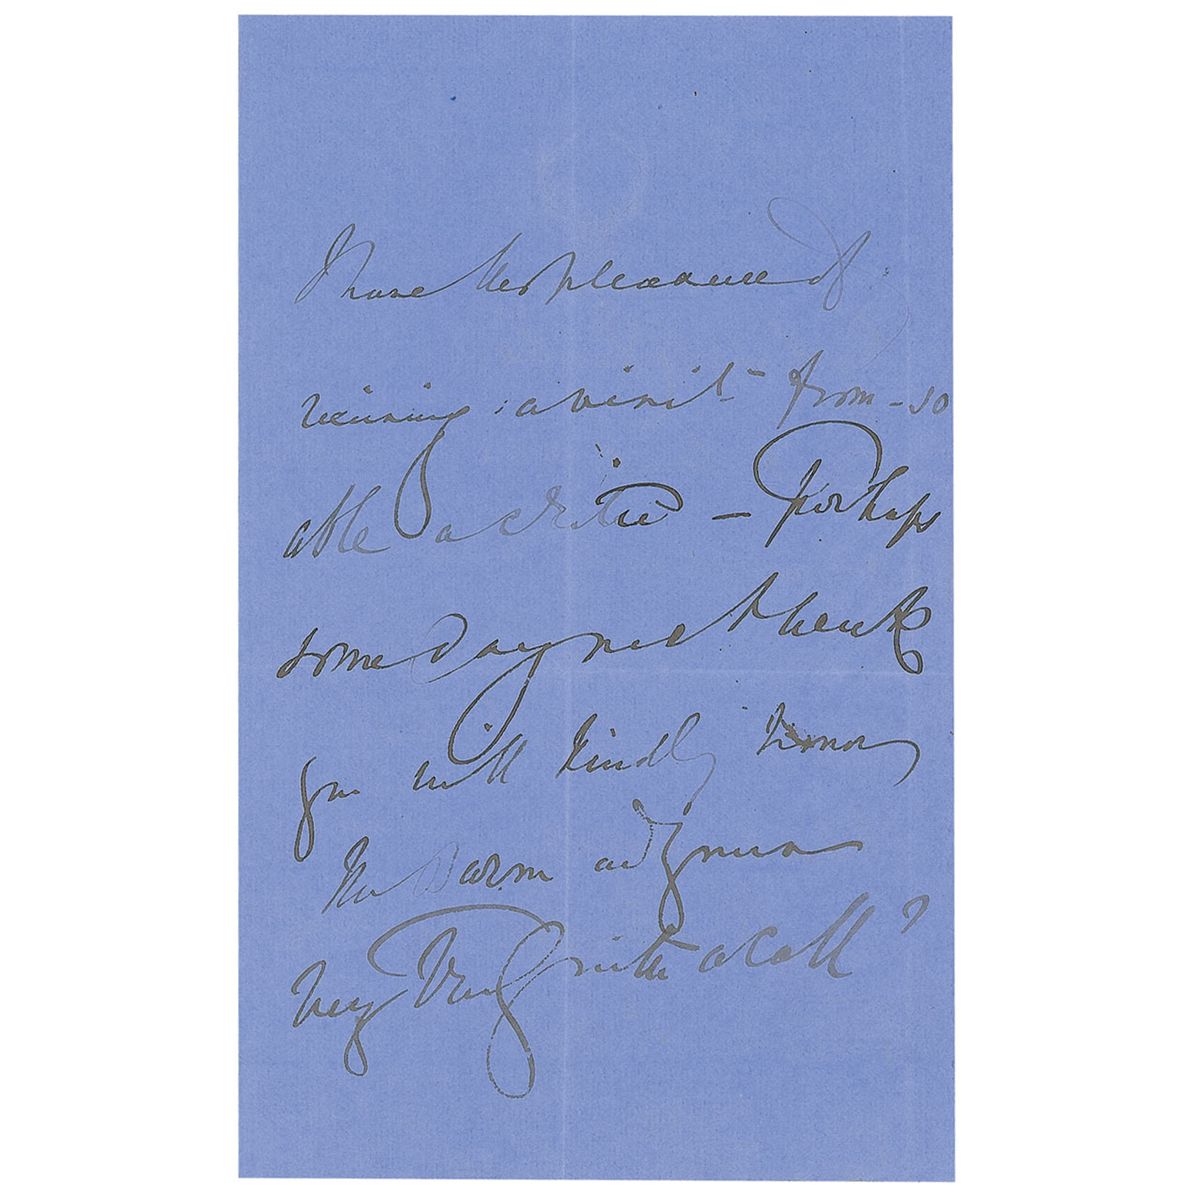 have the pleasure of
receiving a visit from - so
able a critic - Perhaps
some day next week
you will kindly honor
me and yours
very truly with a call?